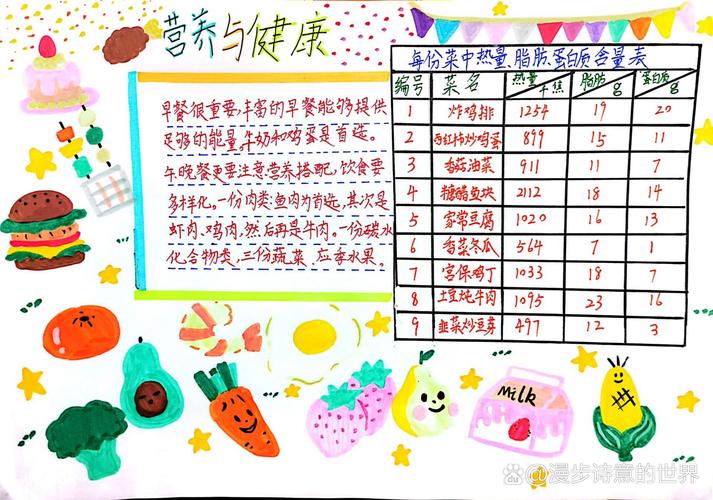 营养与健康
早餐很重要,丰富的早餐能够提供
足够的能量。牛奶和鸡蛋是首选。
午晚餐更要注意营养搭配,饮食要
多样化。一份肉类:鱼肉为首选,其次是
虾肉、鸡肉,然后再是牛肉。一份碳水
化合物类,三份蔬菜、应季水果。
每份菜中热量、脂肪、蛋白质含量表
编号 菜名 热量 千焦 脂肪 g 蛋白质 g
1 炸鸡排 1254 19 20
2 西红柿炒鸡蛋 899 15 11
3 香菇油菜 911 11 7
4 糖醋鱼块 2112 18 14
5 家常豆腐 1020 16 13
6 香菜冬瓜 564 7 1
7 宫保鸡丁 1033 18 7
8 土豆炖牛肉 1095 23 16
9 韭菜炒豆芽 497 12 3
Milk
百度@漫步诗意的世界